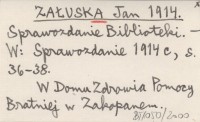 ZAŁUSKA Jan 1914.
Sprawozdanie Biblioteki. –
W: Sprawozdanie 1914 r., s.
36-38.
W Domu Zdrowia Pomocy
Bratniej w Zakopanem.